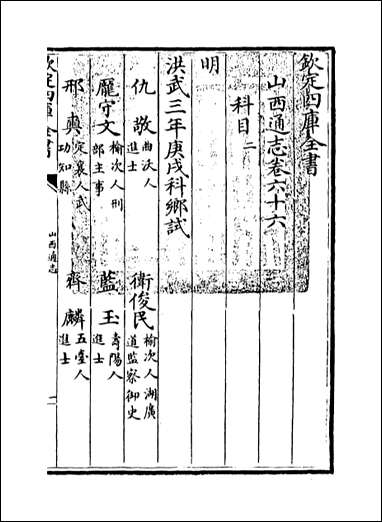 欽定四庫全書
山西通志卷六十六
科目二
明
洪武三年庚戌科鄉試
仇敬 曲沃人進士
衛俊民 榆次人湖廣道監察御史
龎守文 榆次人刑部主事
藍玉 壽陽人進士
邢㒞 定襄人武功知縣
齊麟 五臺人進士
欽定四庫全書
山西通志
一